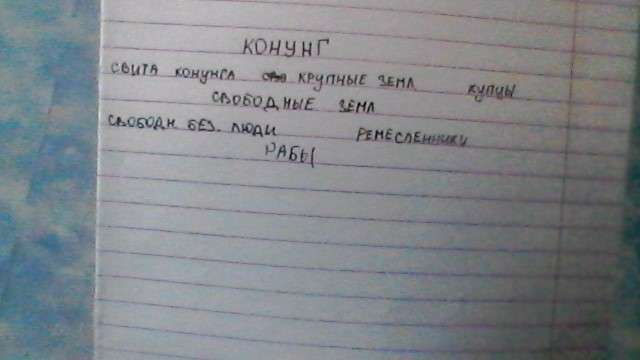 КОНУНГ
СВИТА КОНУНГА КРУПНЫЕ ЗЕМЛ КУПЦЫ
СВОБОДНЫЕ ЗЕМЛ
СВОБОДН. БЕЗ. ЛЮДИ РЕМЕСЛЕННИКИ
РАБЫ